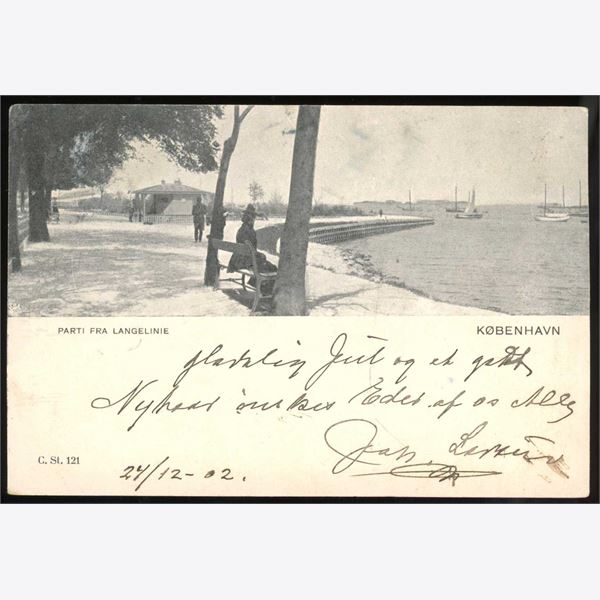 PARTI FRA LANGELINIE
KØBENHAVN
gladelig Jul og et godt
Nytaar ønskes Eder af os Alle
Larsen
C. St. 121
24/12-02.